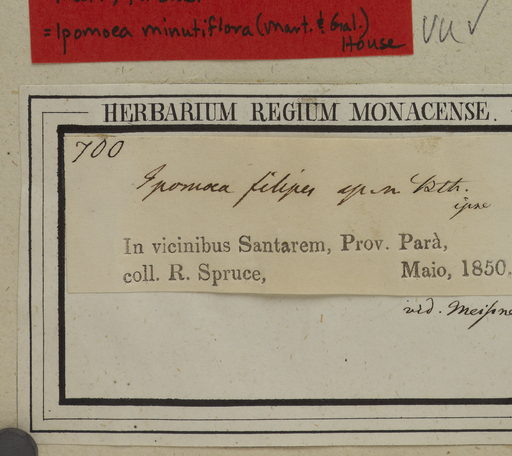 = Ipomoea minutiflora (Mart. & Gal.)
House
HERBARIUM REGIUM MONACENSE.
700
Ipomoea filipes sp. n Bth.
ipse
In vicinibus Santarem, Prov. Parà,
coll. R. Spruce, Maio, 1850.
vid. Meisne